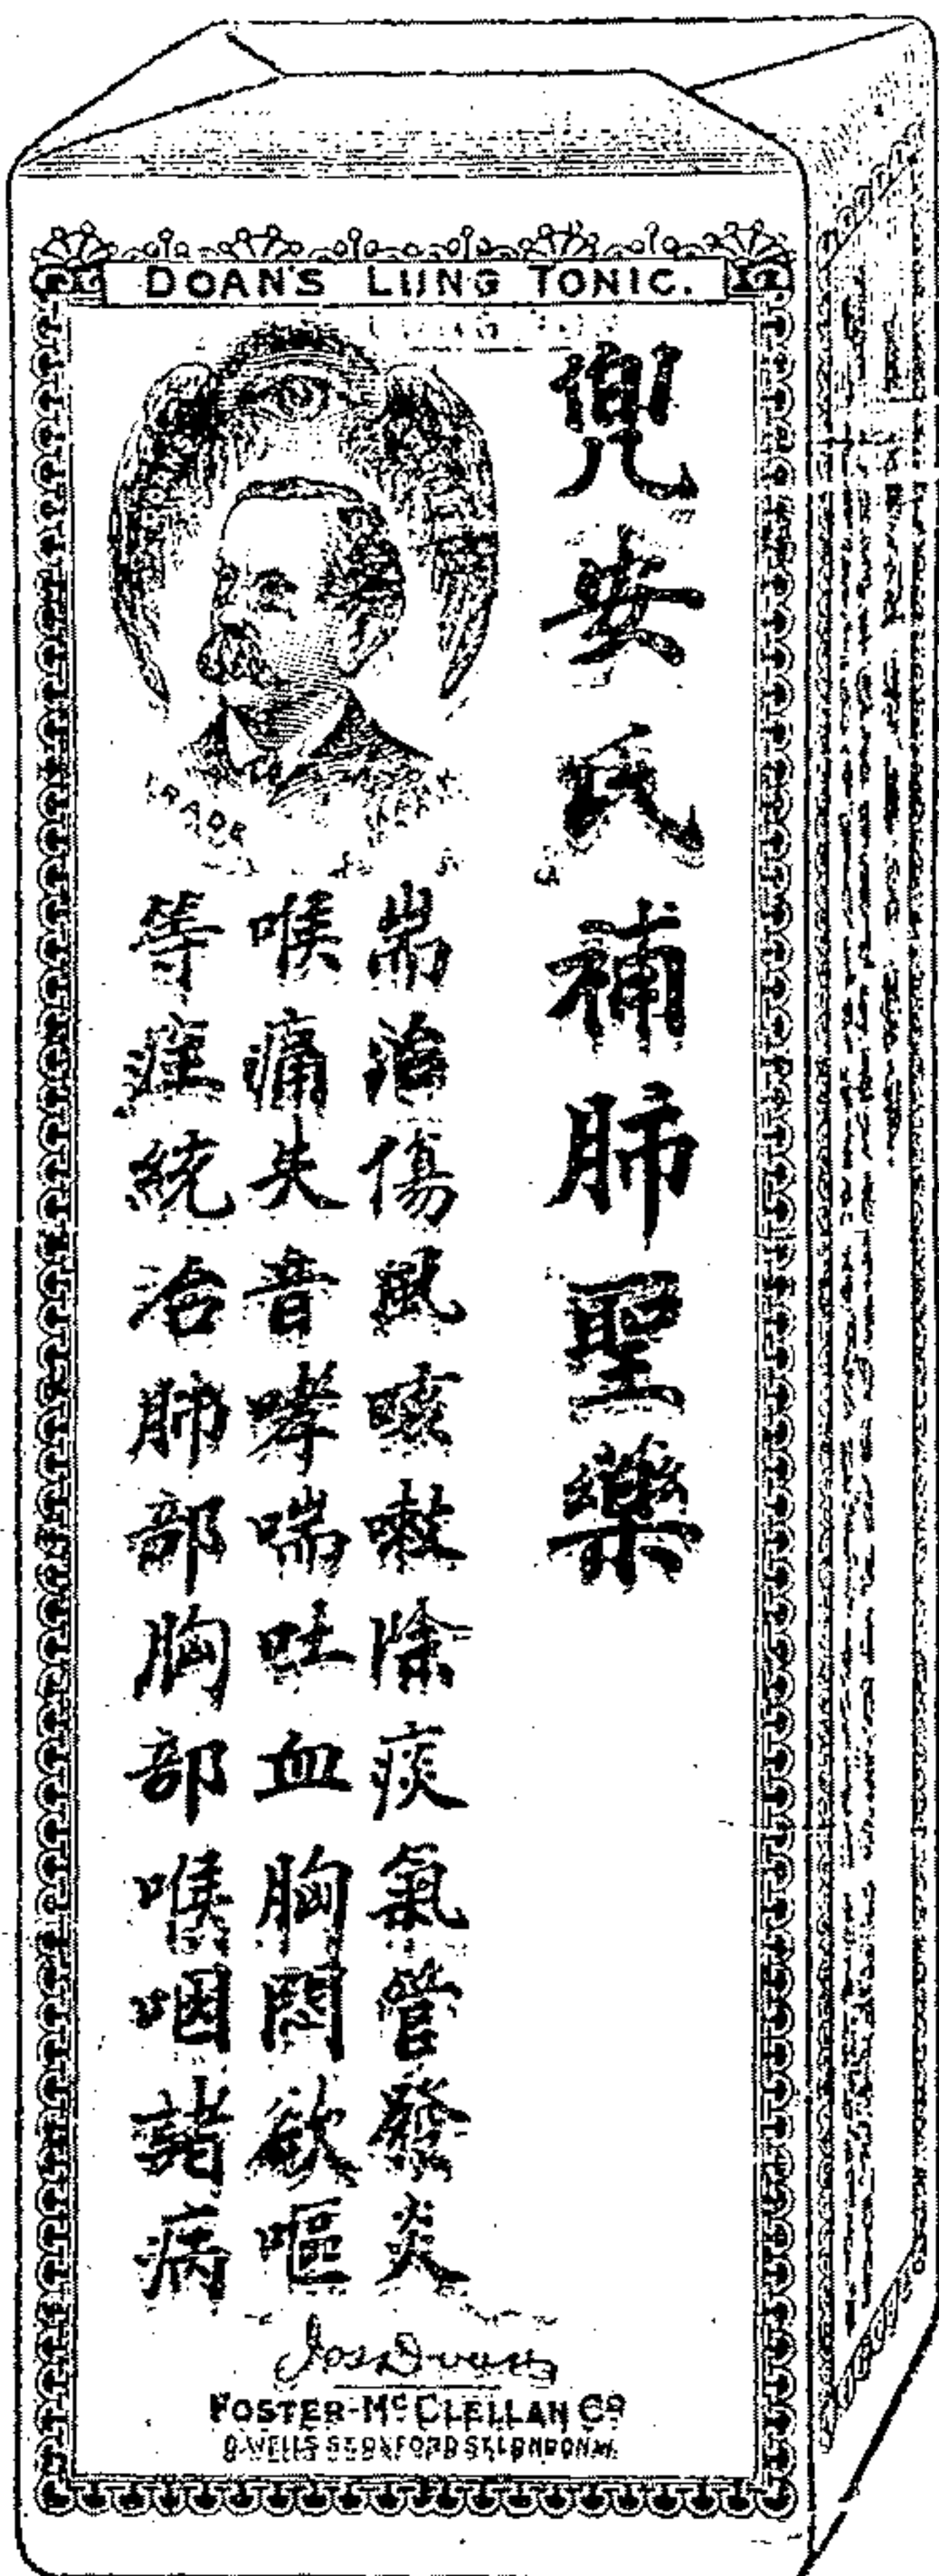 DOAN'S LUNG TONIC.
兜安氏補肺聖藥
TRADE MARK
耑治傷風咳嗽除痰氣管發炎
喉痛失音哮喘吐血胸悶欲嘔
等症統治肺部胸部喉咽諸病
Jos Doan
FOSTER-McCLELLAN Co
8. WELLS ST. OXFORD ST. LONDON. W.